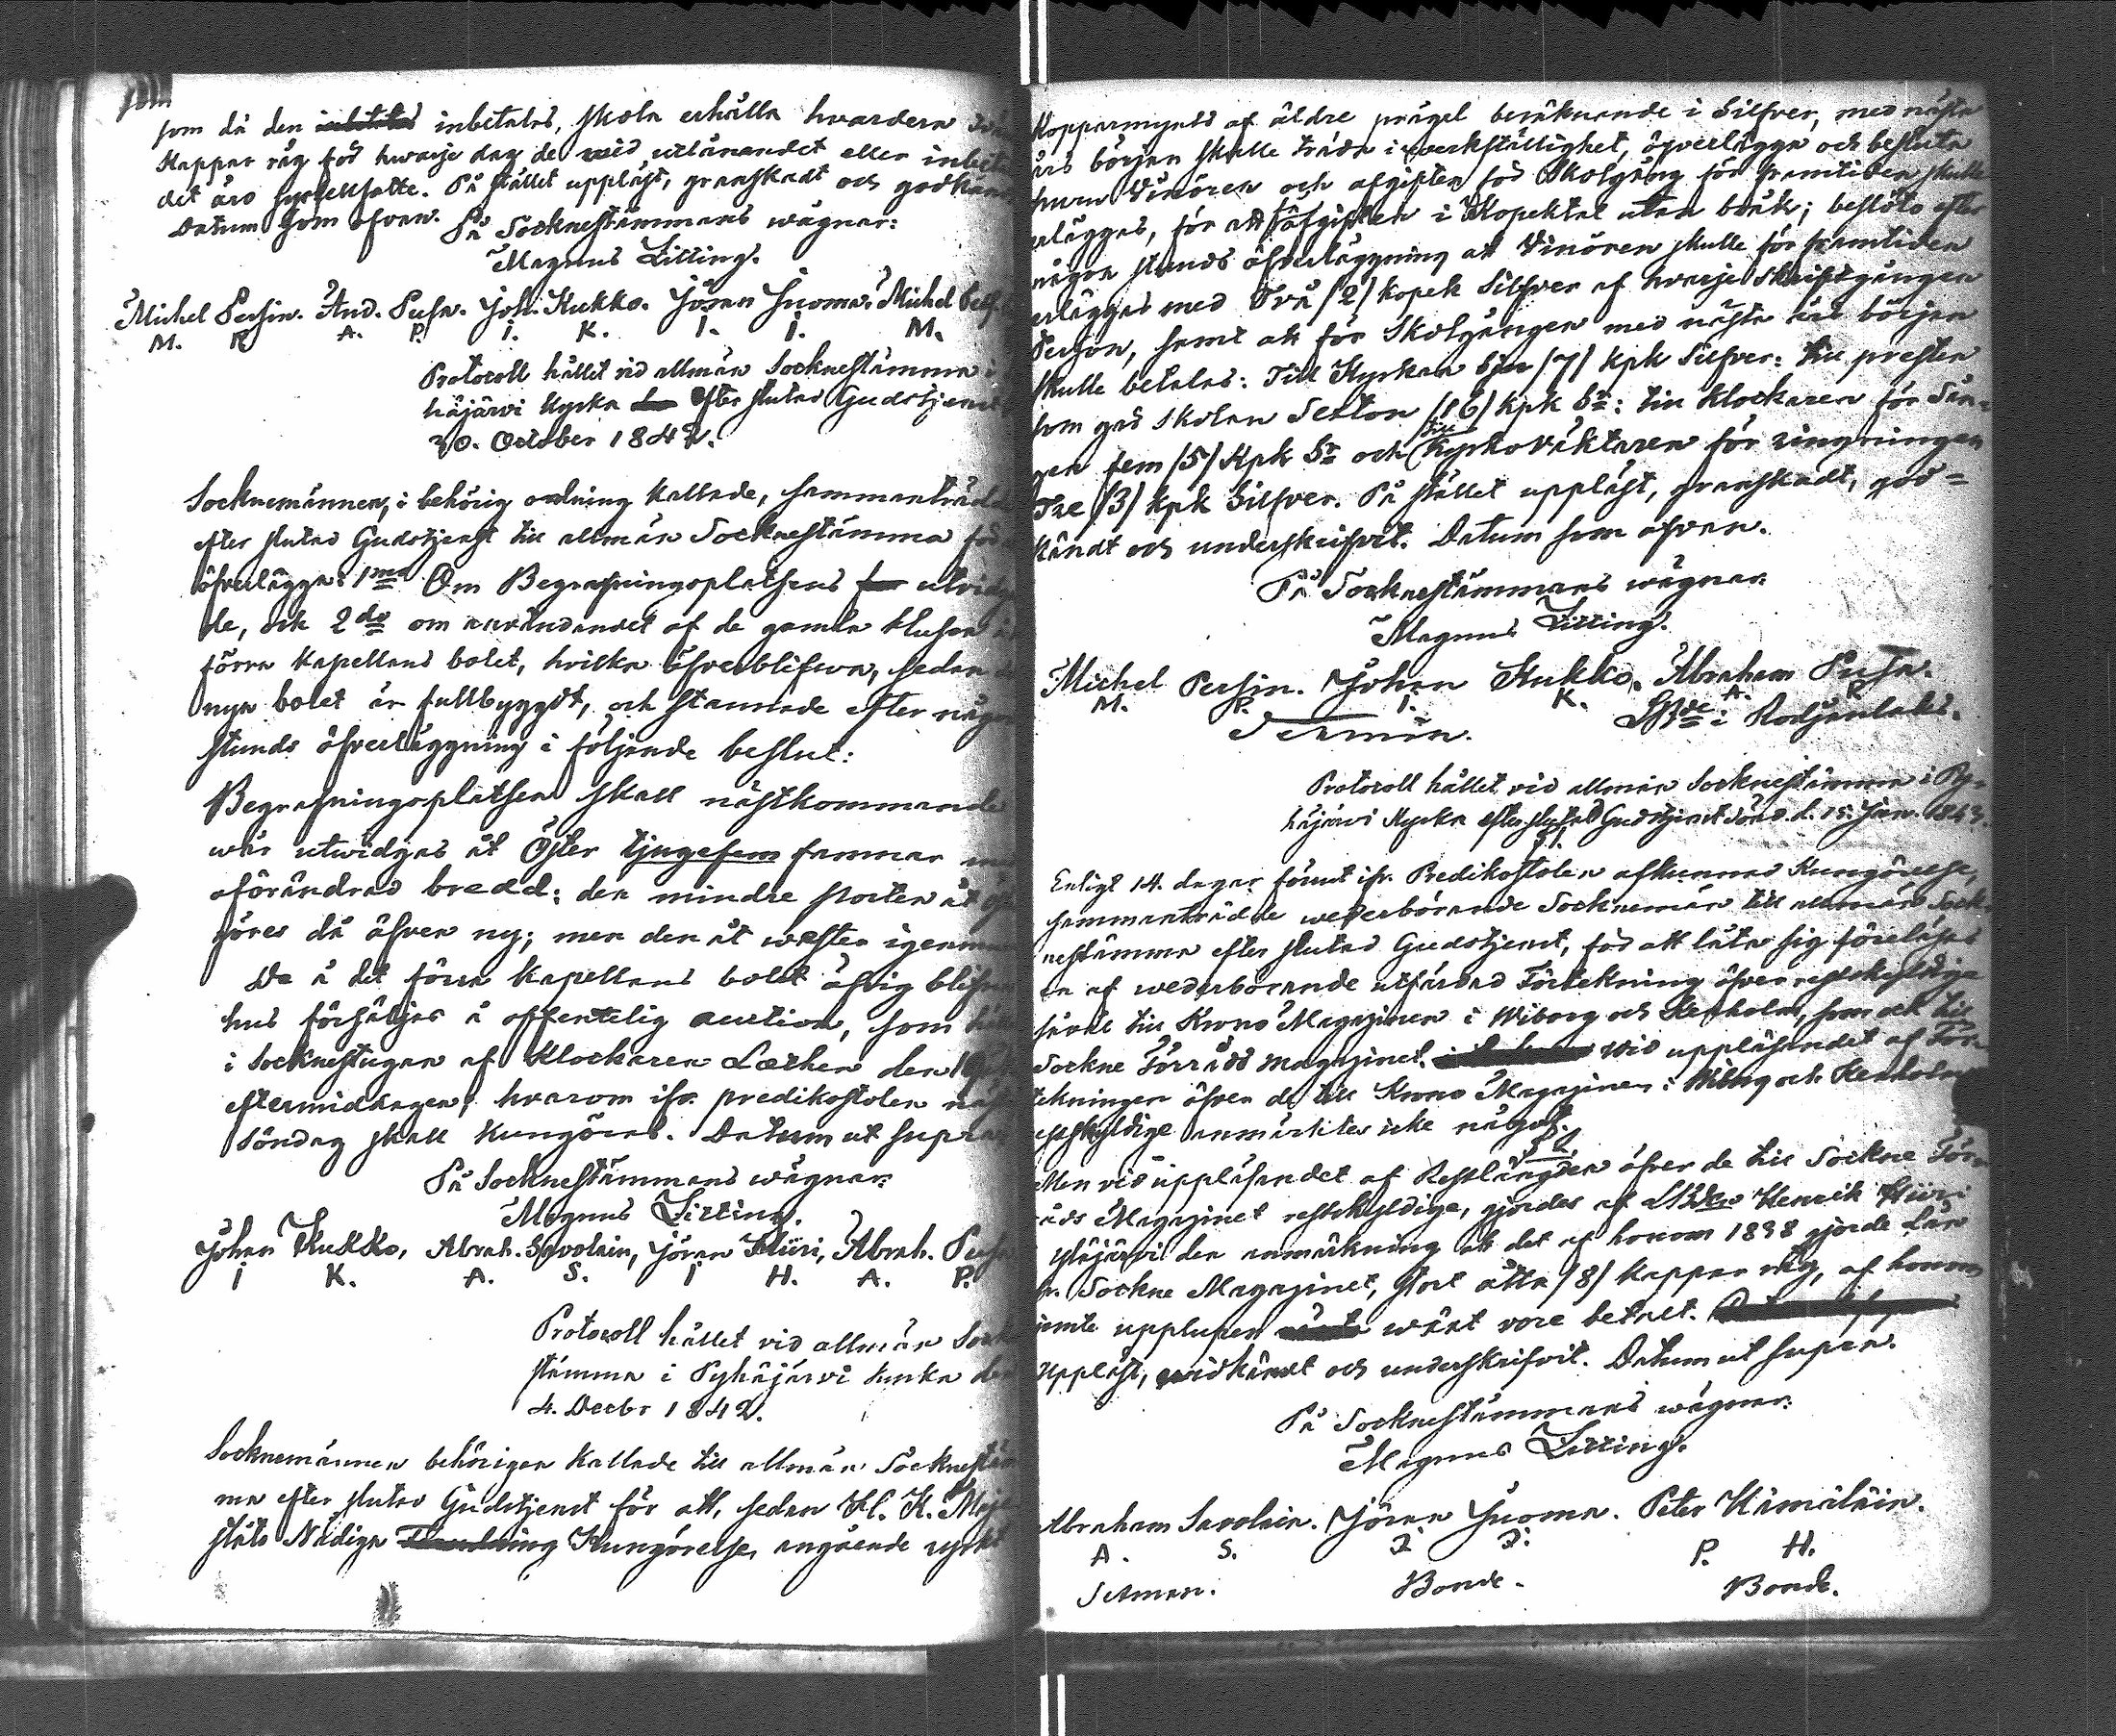 som
som då den inbetalas inbetalas, skola erhålla hvardera två
Kappar råg för hwarje dag de wid utlånandet eller inbeta
det äro sysselsatte. På stället uppläst, granskadt och godkän
Datum som ofvan. På Socknestämmans wägnar:
Magnus Litzing.
Michel Persin. And. Pusa. Joh. Kukko. Jöran Juoma. Michel Pers.
M. P. A. P. I. K. I. I. M.
Protocoll hållet vid allmän Socknestämma i
häjärvi Kyrka efter slutad Gudstjenst
30. October 1842.
Socknemännen, i behörig ordning kallade, sammanträdde
efter slutad Gudstjenst till allmän Socknestämma för
öfverlägga: 1mo Om Begrafningsplatsens utvidg
de, och 2do om användandet af de gamla husen å
förra Kapellans bolet, hvilka öfverblifwa, sedan
nya bolet är fullbyggdt, och stannade efter någon
stunds öfverläggning i följande beslut:
Begrafningsplatsen skall nästkommande
wår utwidgas åt Öster tjugefem famnar
oförändrad bredd; den mindre porten åt
göres då äfven ny; men den åt wester igenm
De å det förra Kapellans bolet öfrig blifna
hus försäljes å offentelig auction, som
i Socknestugan af Klockaren Læthen den
eftermiddagen, hvarom ifr. predikostolen
Söndag skall kungöras. Datum ut supra
På Socknestämmans wägnar:
Magnus Litzing.
Johan Kukko, Abrah. Savolain, Jöran Hiiri, Abrah. Pusa
I K. A. S. I H. A. P.
Protocoll hållet vid allmän Sock
stämma i Pyhäjärvi den
4. Decbr 1842.
Socknemännen behörigen kallade till allmän Socknestäm
ma efter slutad Gudstjenst för att, sedan H. K. Maje
stäts Nådiga Kungörelse, angående
Kopparmynts af äldre prägel beräknande i Silfver, med nästa
års början skulle träda i werkställighet, öfverlägga och besluta
huru Vinören och afgiften för Skolgång för framtiden skulle
erlägges, för att afgiften i Kopektal utan bråk; beslöts efter
någon stunds öfverläggning att Vinören skulle för framtiden
erlägges med Två /2/ Kopek Silfver af hwarje Skriftgången
Person, samt att för Skolgången med nästa års början
skulle betalas: Till Kyrkan Sju /7/ Kpk Silfver: till presten
som går skolan Sexton /16/ Kpk Sr: till Klockaren för Sån=
gen fem /5/ Kpk Sr och till Kyrkoväktaren för ringningen
Tre /3/ Kpk Silfver. På stället uppläst, granskadt, god=
kändt och underskrifvit. Datum som ofvan.
På Socknestämmans wägnar:
Magnus Litzing.
Michel Persin. Johan Kukko. Abraham Pusa.
M. P. I. K. A. P.
Protocoll hållet vid allmän Socknestämma i Py-
häjärvi Kyrka efter slutad Gudstjenst Sönd. d. 15. Jan. 1843.
Enligt 14. dagar förut ifr. Predikostolen afkunnad Kungörelse,
sammanträdde wederbörande Socknemän till allmän Sock-
nestämma efter slutad Gudstjenst, för att låta sig föreläsas
en af wederbörande utfärdad Förtekning öfver restskyldige
såväl till Krono Magazinen i Wiborg och Kexholm, som ock till
Sockne Förråds magazinet. Wid uppläsandet af För-
tekningen öfver de till Krono Magazinen i Wiborg och Kexholm
restskyldige anmärktes icke något.
Men vid uppläsandet af Restlängden öfver de till Sockne För-
råds Magazinet restskyldige, gjordes af Henrik Hiiri
Yläjärvi den anmärkning att det af honom 1838 gjorde Lån
fr. Sockne Magazinet, stort åtta /8/ Kappar råg, af honom
jemte upplupen wäxt vore betalt.
Uppläst, widkändt och underskrifvit. Datum ut supra.
På Socknestämmans wägnar:
Magnus Litzing.
Abraham Savolain. Jöran Juoma. Peter Hämäläin.
A. S. I. I. P. H.
Bonde. Bonde.